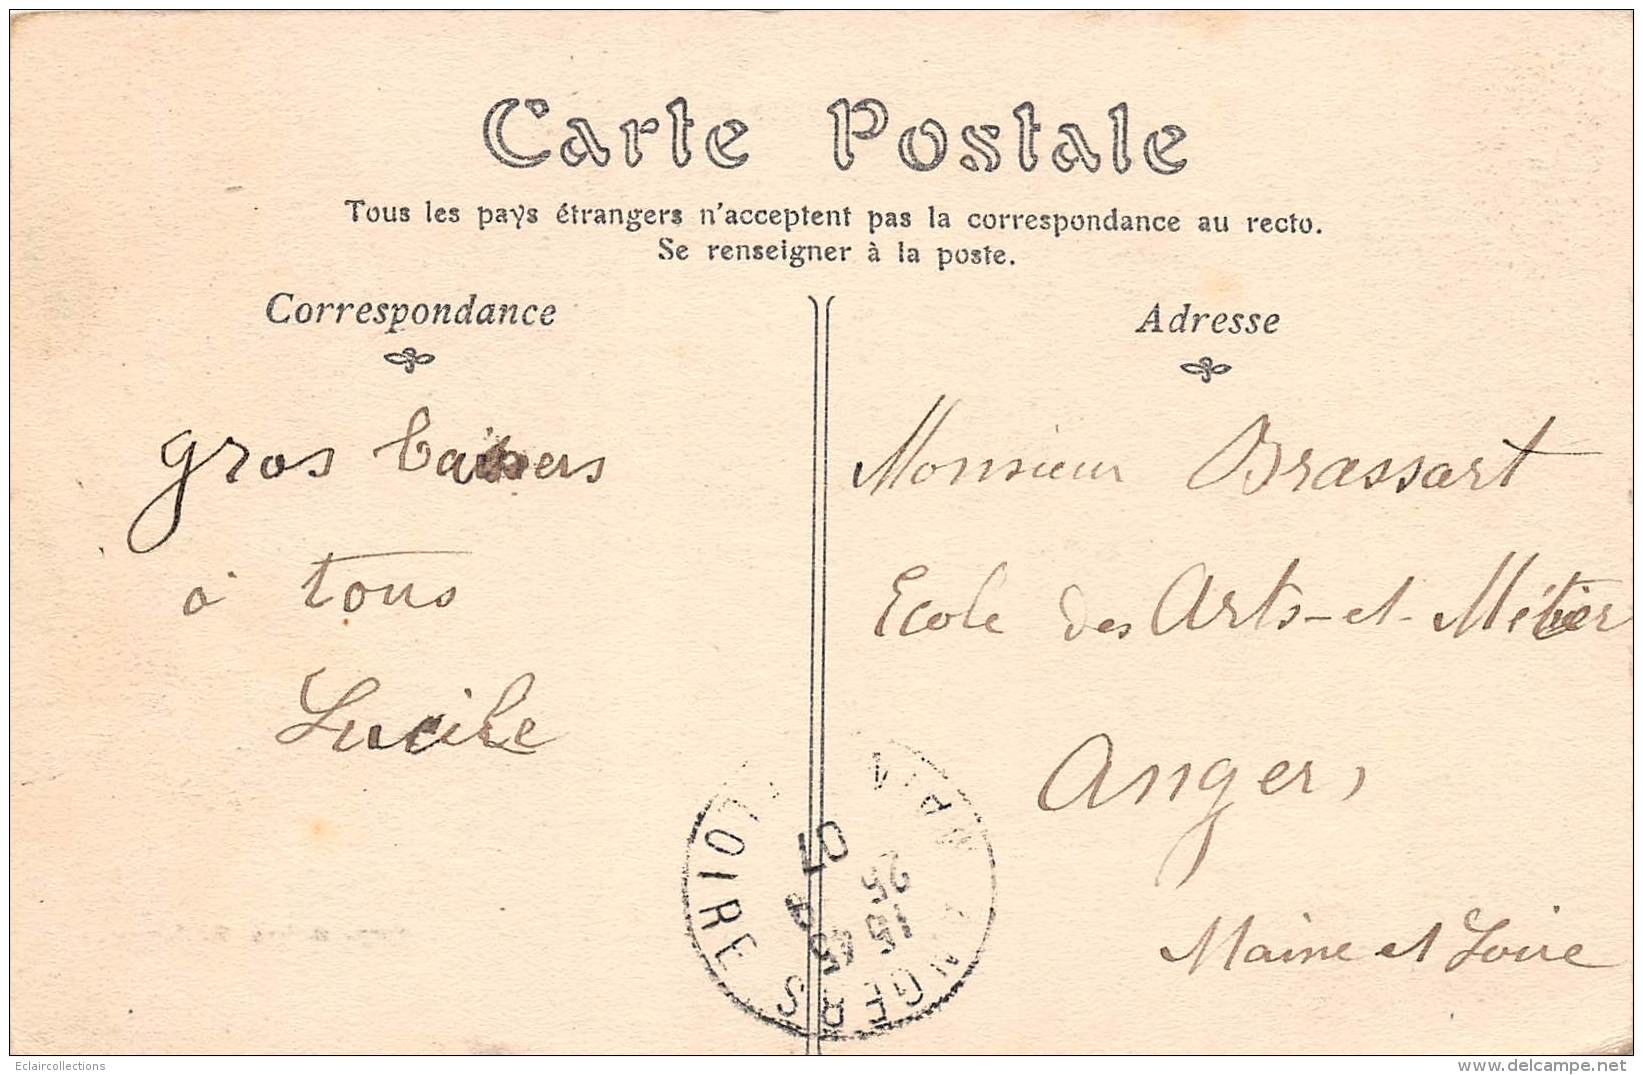 Carte Postale
Tous les pays étrangers n'acceptent pas la correspondance au recto.
Se renseigner à la poste.
Correspondance
gros baisers
à tous
Lucile
Adresse
Monsieur Brassart
Ecole des Arts-et-Métier
Angers
Maine et Loire
ANGERS
LOIRE
07
25
15 45
Eclaircollections
www.delcampe.net